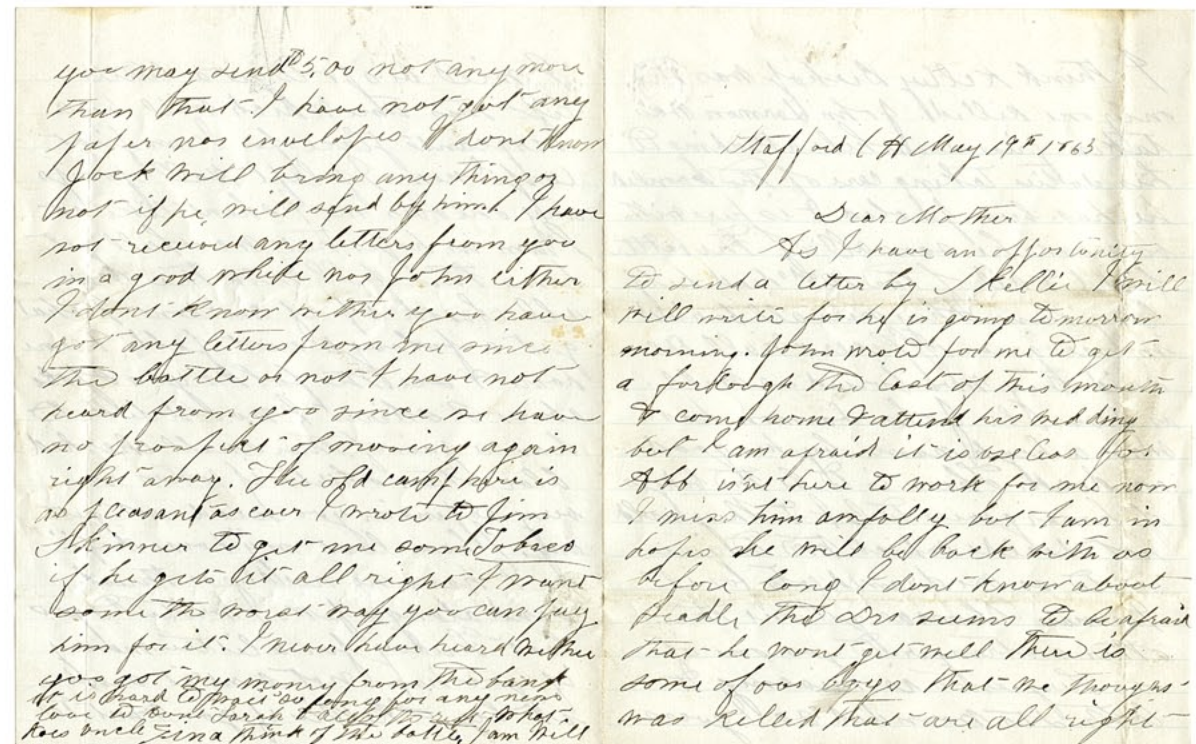 you may send $5.00 not any more
than that. I have not got any
paper nor envelopes I dont know
Jock will bring any thing or
not if he will send by him I have
not received any letters from you
in a good while nor John either
I dont know wither you have
got any letters from me since
the battle or not I have not
heard from you since we have
no prospect of moving again
right away. The old camp here is
as pleasant as ever I wrote to Jim
Skinner to get me some Tobaco
if he gets it all right I want
some the worst way you can pay
him for it. I never have heard wether
you got my money from the bank
it is hard to wait so long for any news
love to Aunt Sarah & all what
does uncle think of the battle, I am well
Stafford C H May 19th 1863
Dear Mother
As I have an opportunity
to send a letter by Skellie I will
will write for he is going to morrow
morning. John wrote for me to get
a forlough the last of this month
& come home & attend his wedding
but I am afraid it is useless for
Abb isnt here to work for me now
I miss him awfully but I am in
hopes he will be back with us
before long I dont know about
Beadle the Drs seems to be afraid
that he wont get well There is
some of our boys that we thought
was killed that are all right